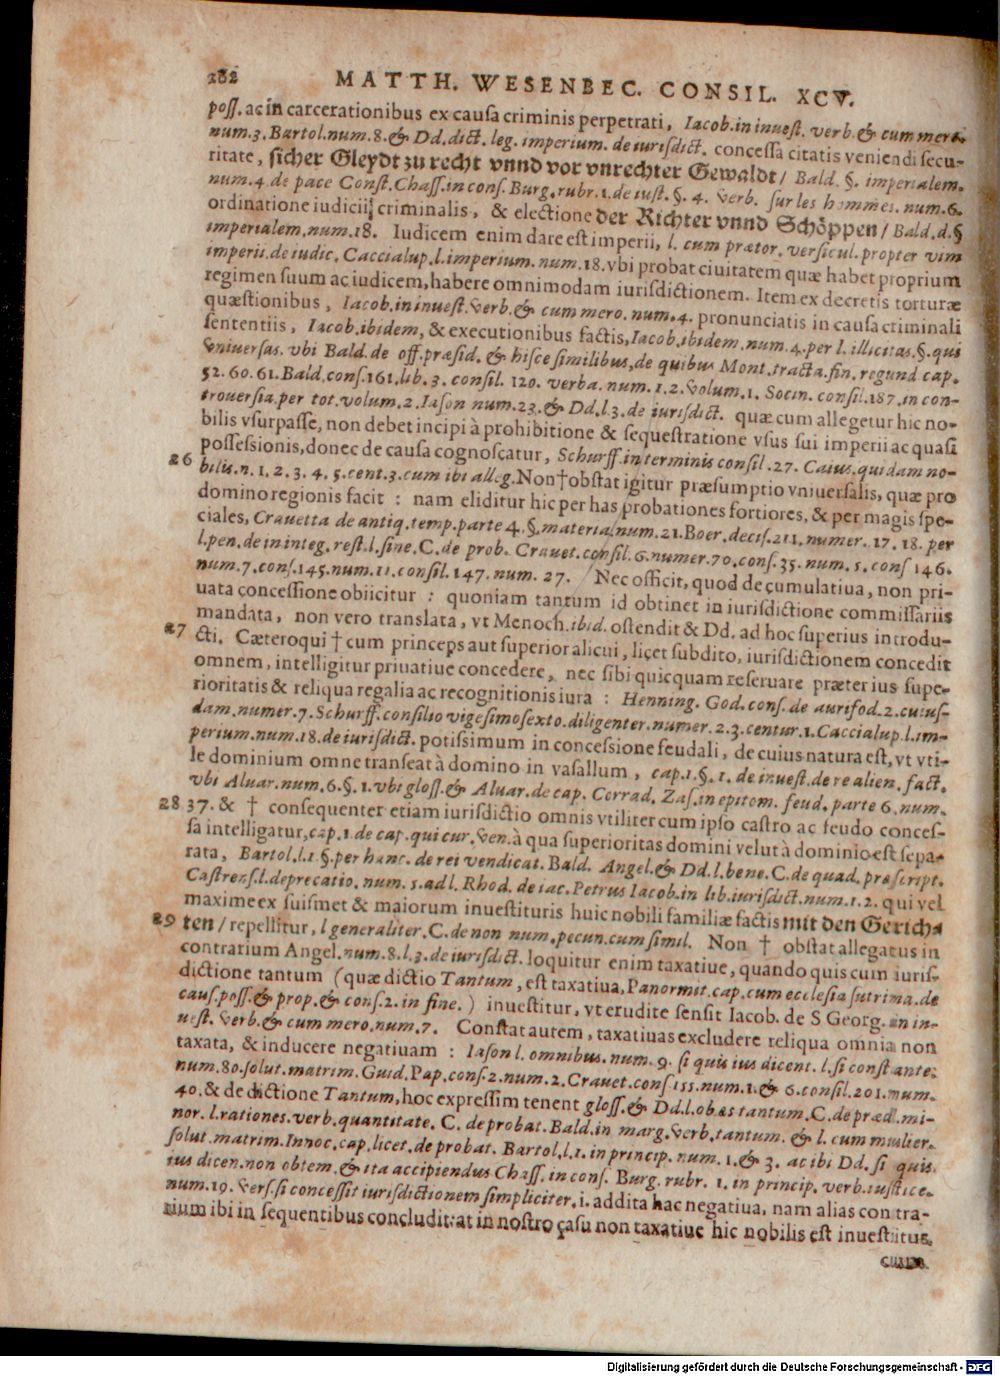 282 MATTH. WESENBEC. CONSIL. XCV.
poſſ. ac in carcerationibus ex cauſa criminis perpetrati, Iacob. in inueſt. verb. & cum mero.
num. 3. Bartol. num. 8. & Dd. dict. leg. imperium. de iurisdict. conceſſa citatis veniendi ſecu-
ritate, ſicher Gleydt zu recht vnnd vor vnrechter Gewaldt / Bald. §. imperialem.
num. 4. de pace Conſt. Chaſſ. in conſ. Burg. rubr. 1. de iuſt. §. 4. Verb. ſur les hommes. num. 6.
ordinatione iudicii criminalis, & electione der Richter vnnd Schöppen / Bald. d. §
imperialem. num. 18. Iudicem enim dare eſt imperii, l. cum prætor. verſicul. propter vim
imperii. de iudic. Caccialup. l. imperium. num. 18. vbi probat ciuitatem quæ habet proprium
regimen ſuum ac iudicem, habere omnimodam iuriſdictionem. Item ex decretis torturæ
quæſtionibus, Iacob. in inueſt. Verb. & cum mero. num. 4. pronunciatis in cauſa criminali
ſententiis, Iacob. ibidem, & executionibus factis, Iacob. ibidem. num. 4. per l. illicitas. §. qui
Vniuerſas. vbi Bald. de off. præſid. & hiſce ſimilibus, de quibus Mont. tracta. fin. regund cap.
52. 60. 61. Bald. conſ. 161. lib. 3. conſil. 120. verba. num. 1. 2. Volum. 1. Socin. conſil. 187. in con-
trouerſia. per tot. volum. 2. Iaſon num. 23. & Dd. l. 3. de iuriſdict. quæ cum allegetur hic no-
bilis vſurpaſſe, non debet incipi à prohibitione & ſequeſtratione vſus ſui imperii ac quaſi
poſſeſſionis, donec de cauſa cognoſcatur, Schurff. in terminis conſil. 27. Caius. quidam no-
26 bilis. n. 1. 2. 3. 4. 5. cent. 3. cum ibi alleg. Non † obſtat igitur præſumptio vniuerſalis, quæ pro
domino regionis facit : nam eliditur hic per has probationes fortiores, & per magis ſpe-
ciales, Crauetta de antiq. temp. parte 4. §. materia. num. 21. Boer. deciſ. 211. numer. 17. 18. per
l. pen. de in integ. reſt. l. ſine. C. de prob. Crauet. conſil. 6. numer. 70. conſ. 35. num. 5. conſ 146.
num. 7. conſ. 145. num. 11. conſil. 147. num. 27. / Nec officit, quod de cumulatiua, non pri-
uata conceſſione obiicitur : quoniam tantum id obtinet in iuriſdictione commiſſariis
mandata, non vero translata, vt Menoch. ibid. oſtendit & Dd. ad hoc ſuperius introdu-
27 cti. Cæteroqui † cum princeps aut ſuperior alicui, licet ſubdito, iuriſdictionem concedit
omnem, intelligitur priuatiue concedere, nec ſibi quicquam reſeruare præter ius ſupe-
rioritatis & reliqua regalia ac recognitionis iura : Henning. God. conſ. de aurifod. 2. cuiuſ-
dam. numer. 7. Schurff. conſilio vigeſimoſexto. diligenter. numer. 2. 3. centur. 1. Caccialup. l. im-
perium. num. 18. de iuriſdict. potiſſimum in conceſſione feudali, de cuius natura eſt, vt vti-
le dominium omne tranſeat à domino in vaſallum, cap. 1. §. 1. de inueſt. de re alien. fact.
vbi Aluar. num. 6. §. 1. vbi gloſſ. & Aluar. de cap. Corrad. Zaſ. in epitom. feud. parte 6. num.
28 37. & † conſequenter etiam iuriſdictio omnis vtiliter cum ipſo caſtro ac feudo conceſ-
ſa intelligatur, cap. 1. de cap. qui cur. Ven. à qua ſuperioritas domini velut à dominio eſt ſepa-
rata, Bartol. l. 1 §. per hanc. de rei vendicat. Bald. Angel. & Dd. l. bene. C. de quad. præſcript.
Caſtrenſ. l. deprecatio. num. 5. ad l. Rhod. de iac. Petrus Iacob. in lib. iuriſdict. num. 1. 2. qui vel
maxime ex ſuiſmet & maiorum inueſtituris huic nobili familiæ factis mit den Gerich-
29 ten / repellitur, l generaliter. C. de non num. pecun. cum ſimil. Non † obſtat allegatus in
contrarium Angel. num. 8. l. 3. de iuriſdict. loquitur enim taxatiue, quando quis cum iuriſ-
dictione tantum (quæ dictio Tantum, eſt taxatiua, Panormit. cap. cum eccleſia ſutrima. de
cauſ. poſſ. & prop. & conſ. 2. in fine.) inueſtitur, vt erudite ſenſit Iacob. de S Georg. in in-
ueſt. Verb. & cum mero. num. 7. Conſtat autem, taxatiuas excludere reliqua omnia non
taxata, & inducere negatiuam : Iaſon l. omnibus. num. 9. ſi quis ius dicent. l. ſi conſtante.
num. 80. ſolut. matrim. Guid. Pap. conſ. 2. num. 2. Crauet. conſ 155. num. 1. & 6. conſil. 201. num.
40. & de dictione Tantum, hoc expreſſim tenent gloſſ. & Dd. l. ob æs tantum. C. de præd. mi-
nor. l. rationes. verb. quantitate. C. de probat. Bald. in marg. Verb. tantum. & l. cum mulier.
ſolut. matrim. Innoc. cap. licet. de probat. Bartol. l. 1. in princip. num. 1. & 3. ac ibi Dd. ſi quis
ius dicen. non obtem. & ita accipiendus Chaſſ. in conſ. Burg. rubr. 1. in princip. verb. iuſtice.
num. 19. Verſ. ſi conceſſit iuriſdictionem ſimpliciter. i. addita hac negatiua, nam alias contra-
rium ibi in ſequentibus concludit: at in noſtro caſu non taxatiue hic nobilis eſt inueſtitus,
Digitalisierung gefördert durch die Deutsche Forschungsgemeinschaft - DFG